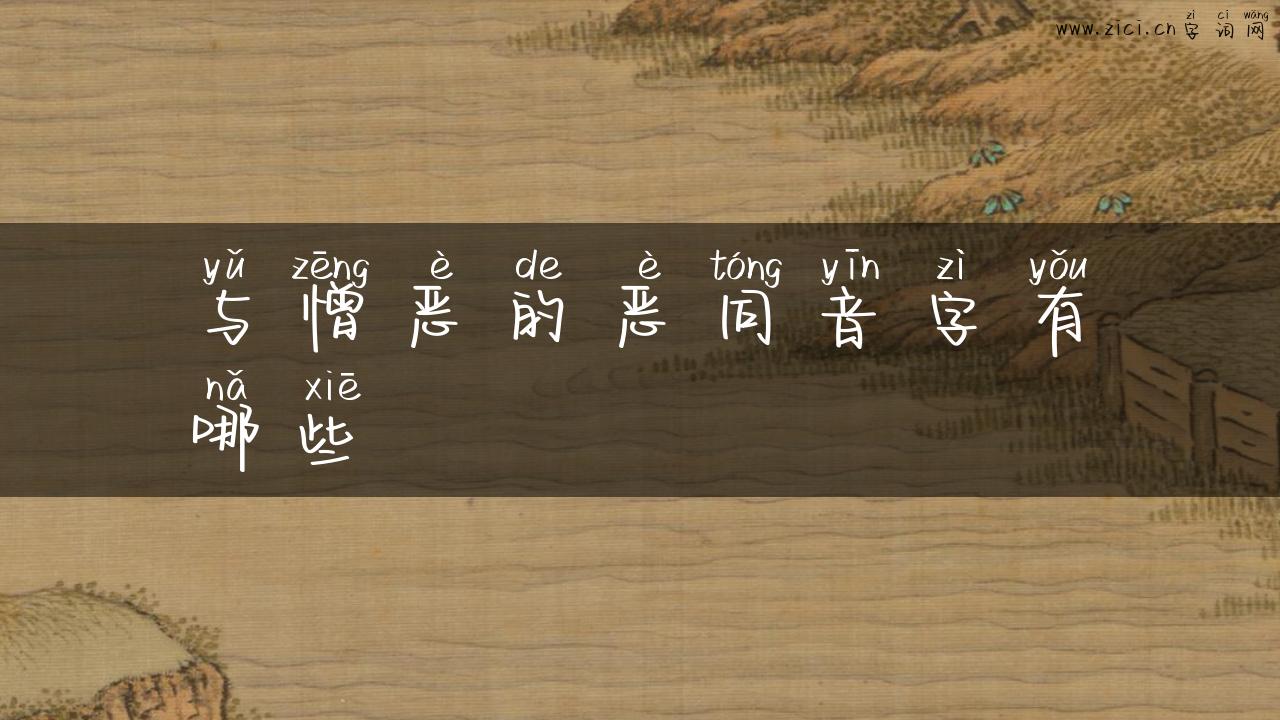 zì cí wǎng
www.zici.cn字词网
yǔ zēng è de è tóng yīn zì yǒu
与憎恶的恶同音字有
nǎ xiē
哪些